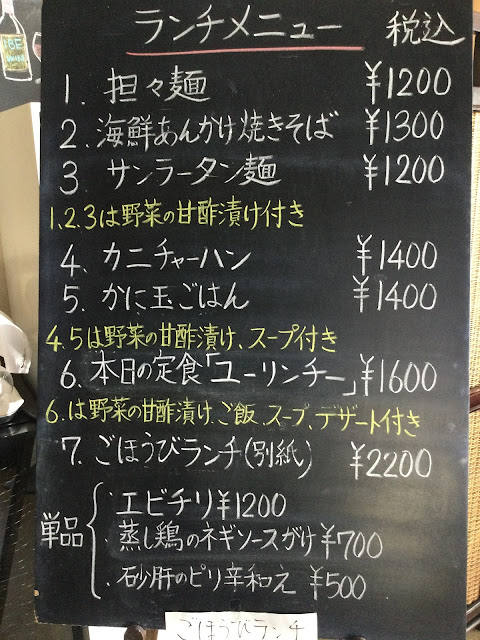 ランチメニュー 税込
1. 担々麺 ¥1200
2. 海鮮あんかけ焼きそば ¥1300
3 サンラータン麺 ¥1200
1.2.3は野菜の甘酢漬け付き
4、カニチャーハン ¥1400
5、かに玉ごはん ¥1400
4.5は野菜の甘酢漬け、スープ付き
6.本日の定食「ユーリンチー」¥1600
6.は野菜の甘酢漬け、ご飯、スープ、デザート付き
7.ごほうびランチ(別紙) ¥2200
単品
・エビチリ¥1200
・蒸し鶏のネギソースがけ¥700
・砂肝のピリ辛和え ¥500
ごほうびランチ